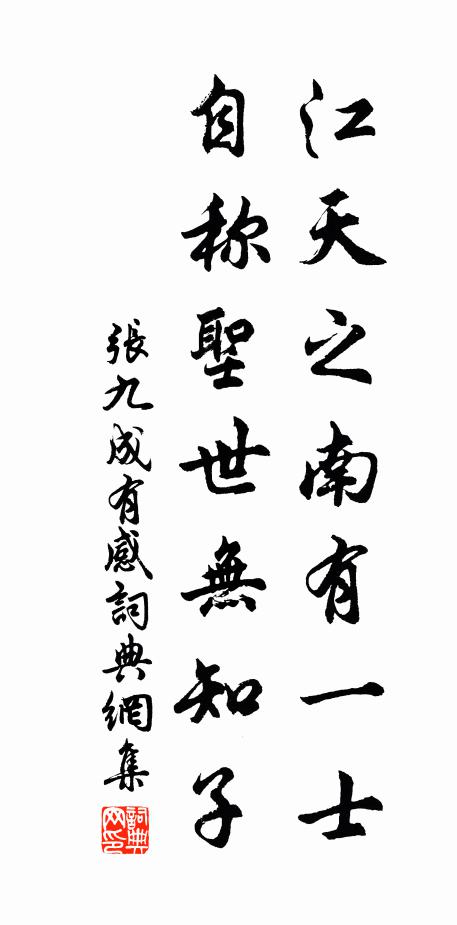 江天之南有一士
自称聖世無知子
張九成有感詞典網集
詞典網印